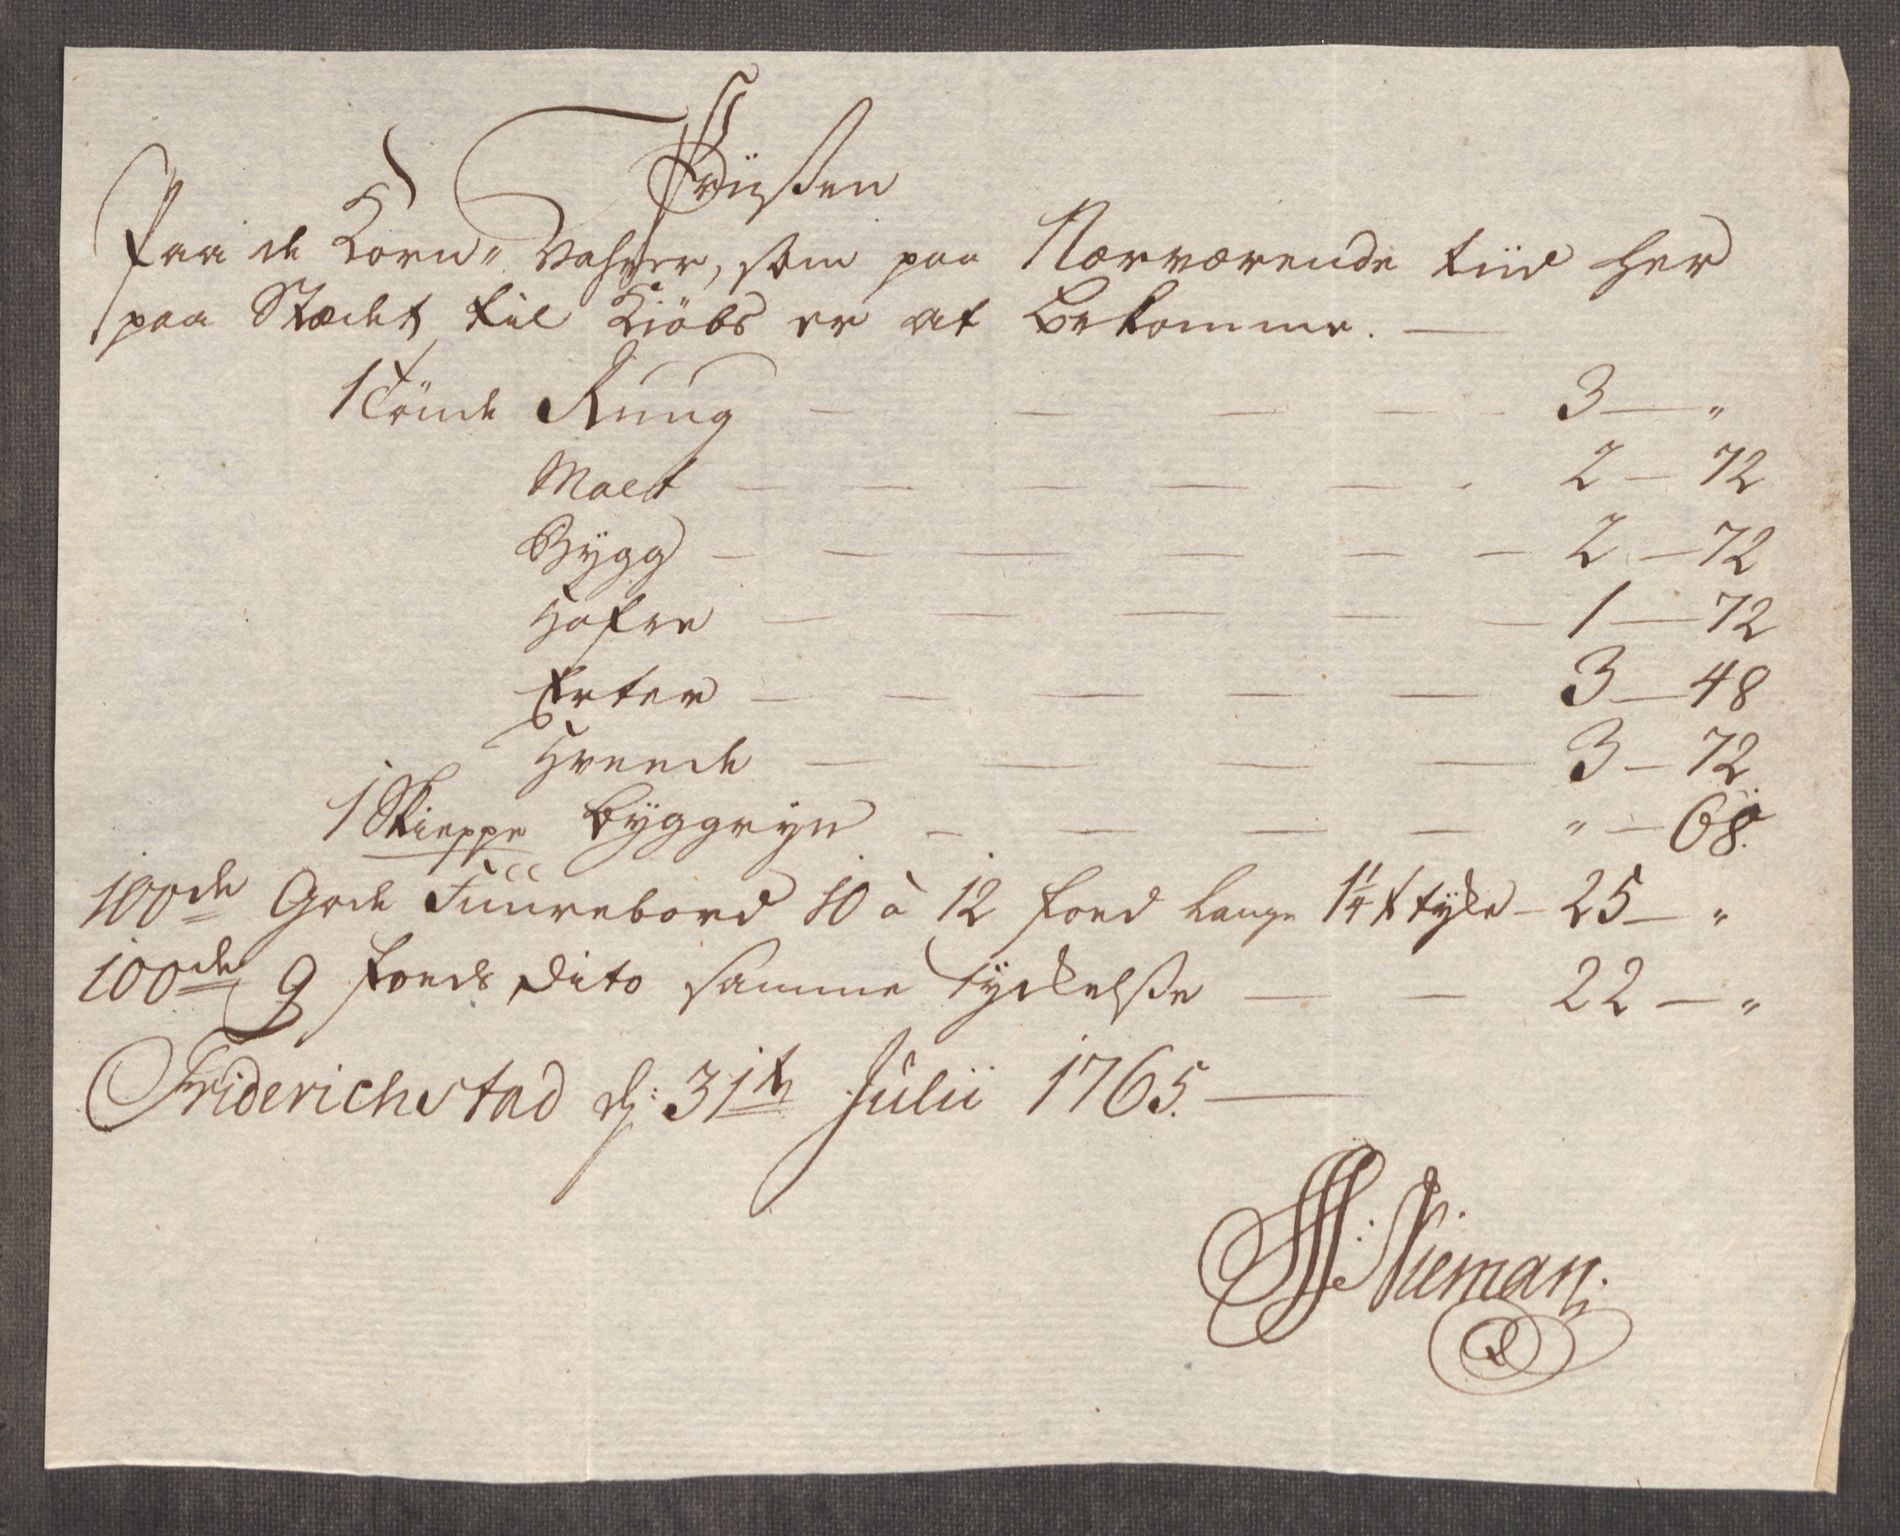 Prüßen
Paa de Korn-Vahrer, som paa Nærværende tiid her
paa Stædet til Kiöbs er at bekomme. —
1 Tönde Rung — — — — — 3 — "
Malt — — — — — 2 — 72
Bÿgg — — — — — 2 — 72
Hafre — — — — — 1 — 72
Erter — — — — — 3 — 48
Hveede — — — — 3 — 72
1 Skieppe bÿggrÿn — — — — " — 68.
100de Gode Fuurebord 10 à 12 foed lange 1¼ t tÿke — 25 — "
100de 9 foeds Dito samme Tÿckelße — — 22 — "
Friderichstad d: 31te Julii 1765. —
Nieman